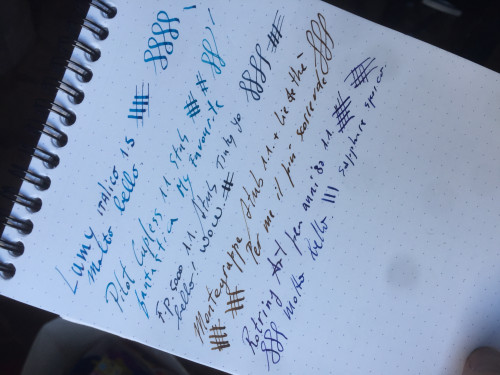 Lamy italico 1.5
molto bello.
Pilot Capless 1.1 Stub
fantastica My favourite!
1.1 Stub Tinty yo
bello! wow.
Montegrappa Stub 1.1 + 
Per me il più scorrevole
Rotring Art Pen 1.1.
molto bello. sapphire